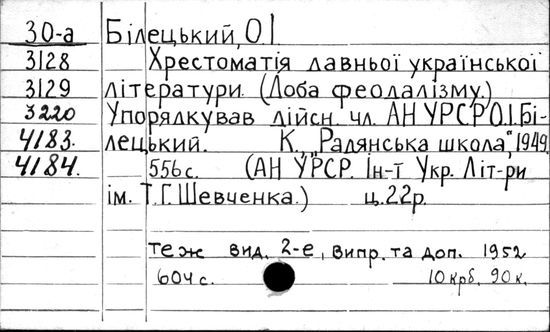 30-а Білецький, О.І
3128 Хрестоматія давньої української
3129 літератури. (Доба феодалізму.)
3220 Упорядкував дійсн. чл. АН УРСР О.І. Бі-
4183. лецький. К., „Радянська школа", 1949.
4184. 556 с. (АН УРСР. Ін-т Укр. Літ-ри
ім. Т.Г. Шевченка.) ц. 22 р.
те ж вид. 2-е, випр. та доп. 1952
604 с. 10 крб. 90 к.